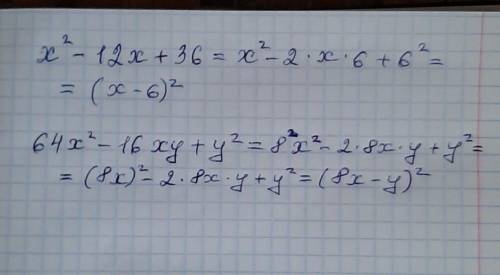 x² - 12x + 36 = x² - 2·x·6 + 6² =
= (x - 6)²
64x² - 16xy + y² = 8²x² - 2·8x·y + y² =
= (8x)² - 2·8x·y + y² = (8x - y)²